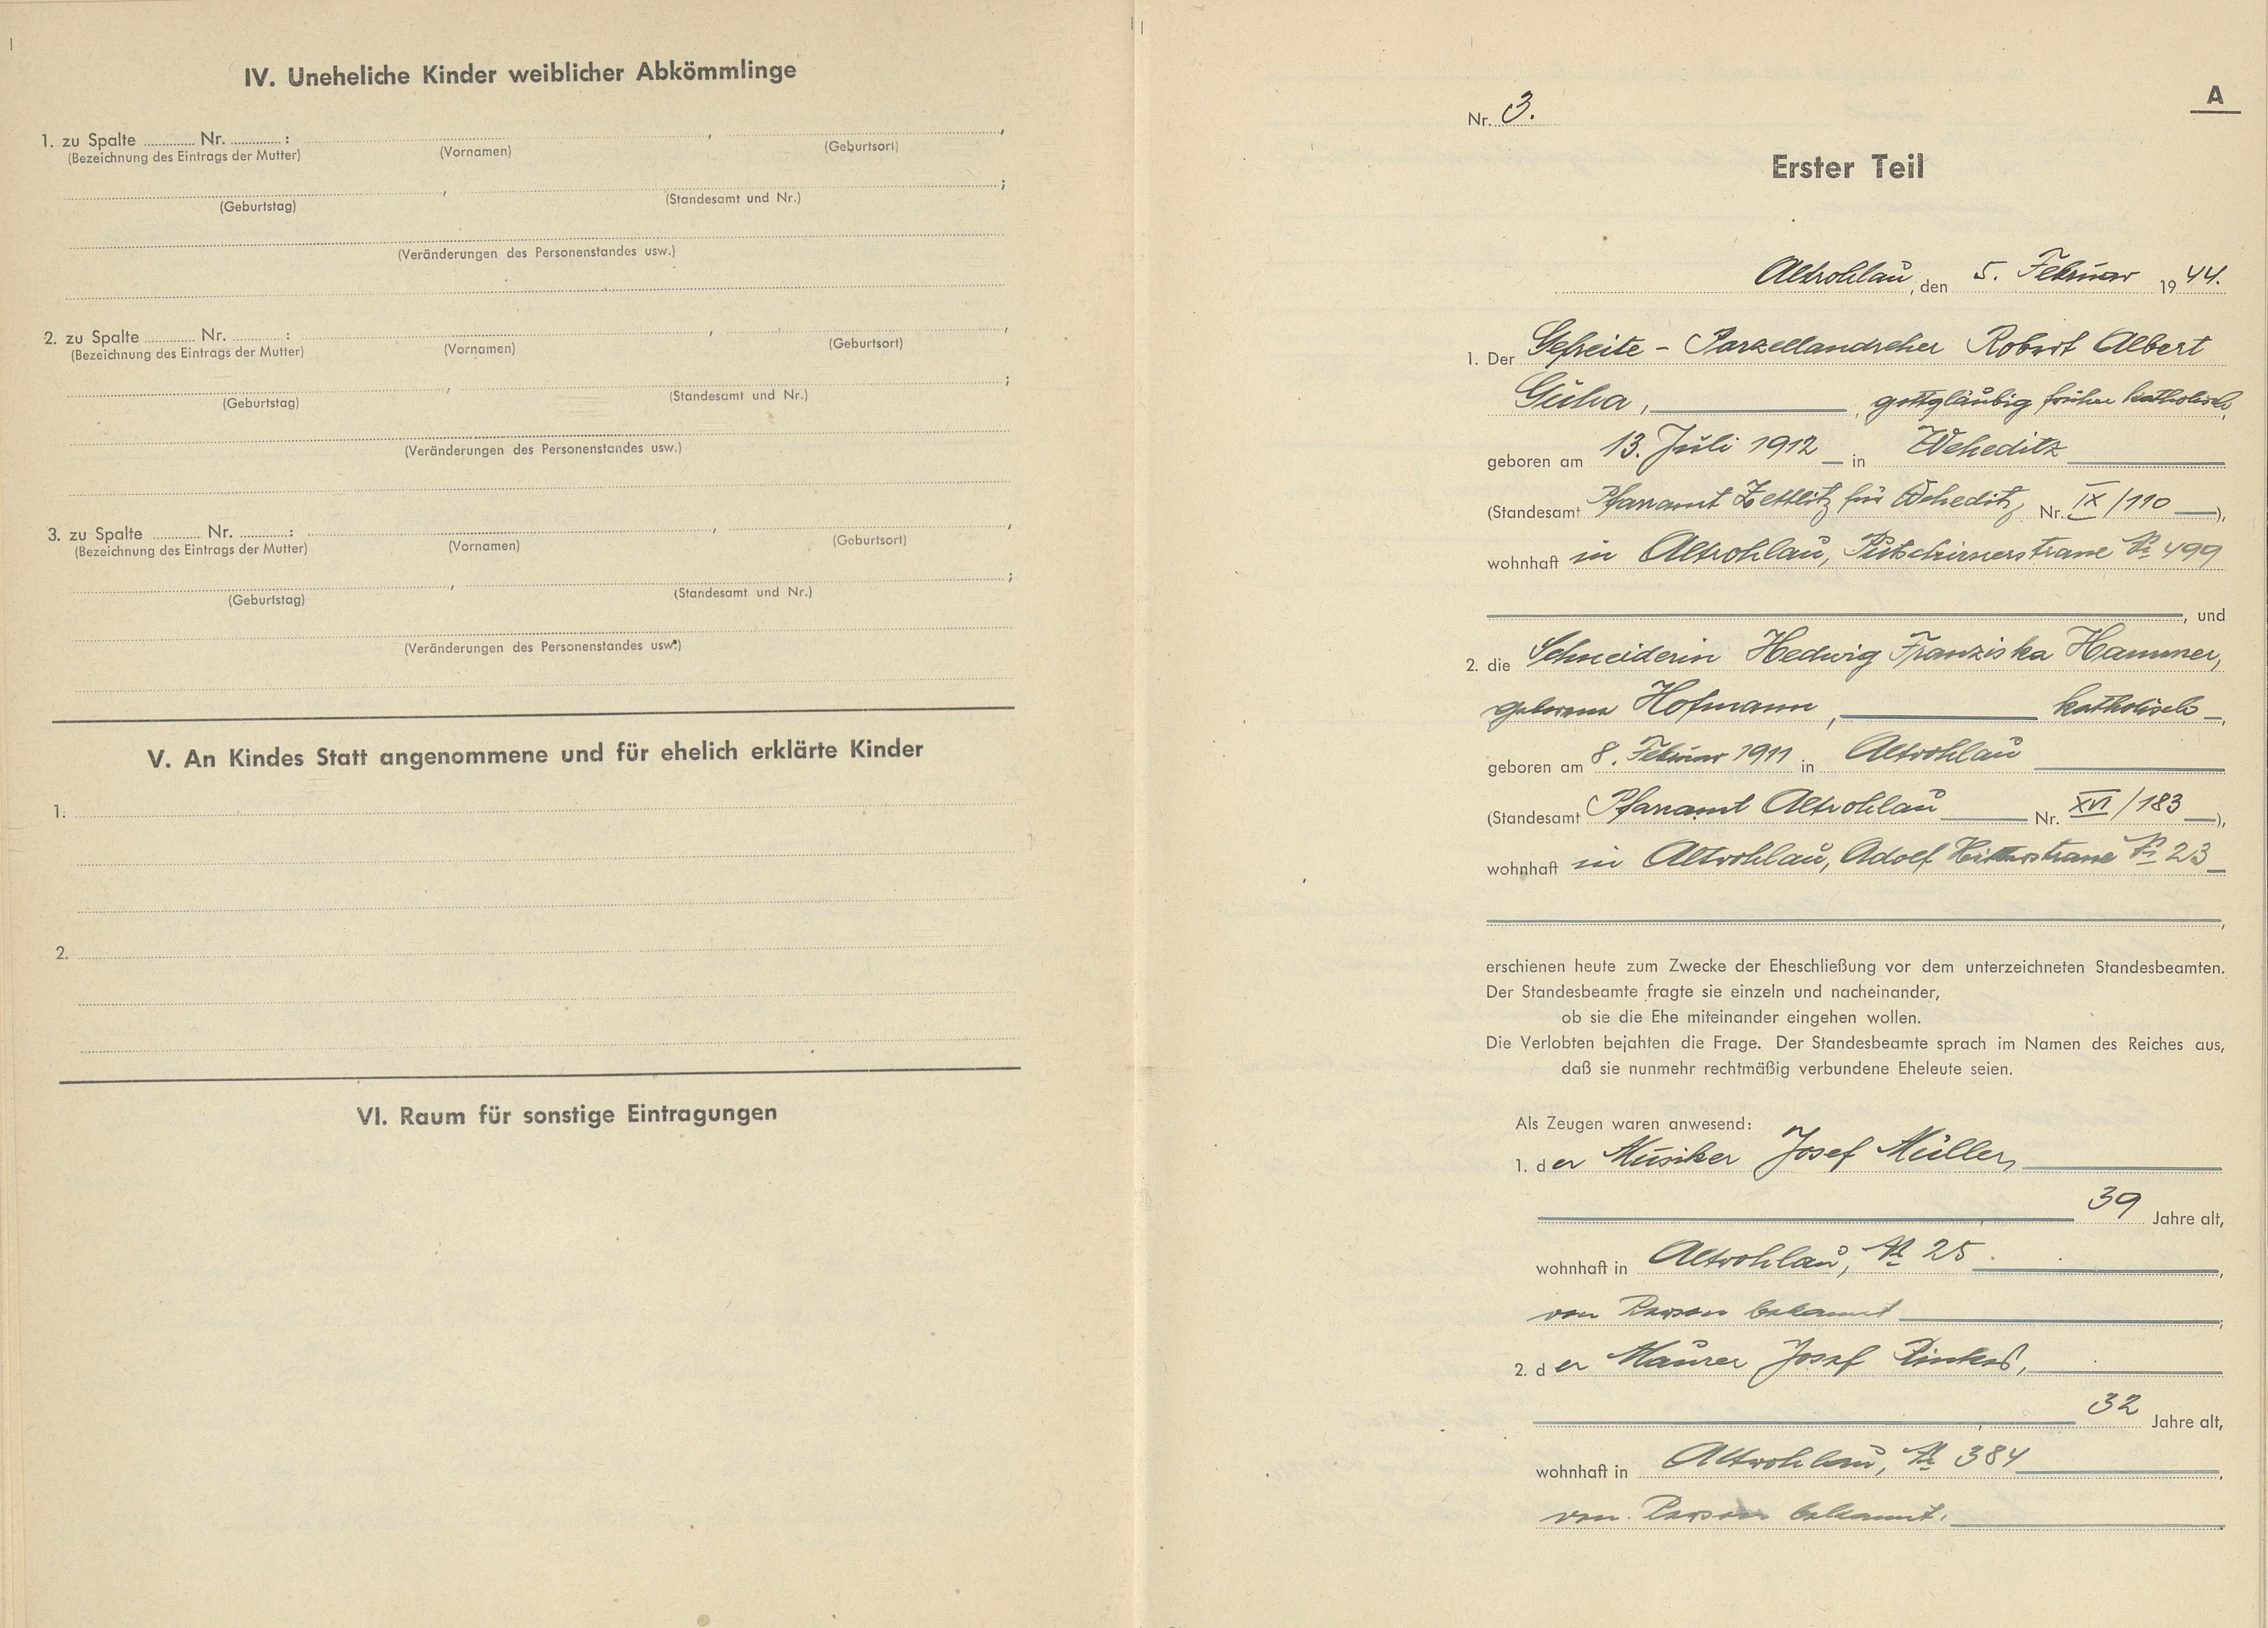 IV. Uneheliche Kinder weiblicher Abkömmlinge
1. zu Spalte ............ Nr. ............ :
(Bezeichnung des Eintrags der Mutter) (Vornamen) (Geburtsort)
(Geburtstag) (Standesamt und Nr.)
(Veränderungen des Personenstandes usw.)
2. zu Spalte ............ Nr. ............ :
(Bezeichnung des Eintrags der Mutter) (Vornamen) (Geburtsort)
(Geburtstag) (Standesamt und Nr.)
(Veränderungen des Personenstandes usw.)
3. zu Spalte ............ Nr. ............ :
(Bezeichnung des Eintrags der Mutter) (Vornamen) (Geburtsort)
(Geburtstag) (Standesamt und Nr.)
(Veränderungen des Personenstandes usw.)
V. An Kindes Statt angenommene und für ehelich erklärte Kinder
1.
2.
VI. Raum für sonstige Eintragungen
A
Nr. 3.
Erster Teil
Altrohlau, den 5. Februar 1944.
1. Der Gefreite - Porzellandreher Robert Albert
Güha, gottgläubig früher katholisch,
geboren am 13. Juli 1912 in Weheditz
(Standesamt Pfarramt Zettlitz für Weheditz Nr. IX/110),
wohnhaft in Altrohlau, Putschirnerstrasse № 499
, und
2. die Schneiderin Hedwig Franziska Hammer,
geborene Hofmann, katholisch,
geboren am 8. Februar 1911 in Altrohlau
(Standesamt Pfarramt Altrohlau Nr. XVI/183),
wohnhaft in Altrohlau, Adolf Hitlerstrasse № 23
erschienen heute zum Zwecke der Eheschließung vor dem unterzeichneten Standesbeamten.
Der Standesbeamte fragte sie einzeln und nacheinander,
ob sie die Ehe miteinander eingehen wollen.
Die Verlobten bejahten die Frage. Der Standesbeamte sprach im Namen des Reiches aus,
daß sie nunmehr rechtmäßig verbundene Eheleute seien.
Als Zeugen waren anwesend:
1. der Musiker Josef Müller,
39 Jahre alt,
wohnhaft in Altrohlau, № 25,
von Person bekannt;
2. der Maurer Josef
32 Jahre alt,
wohnhaft in Altrohlau, № 384,
von Person bekannt.